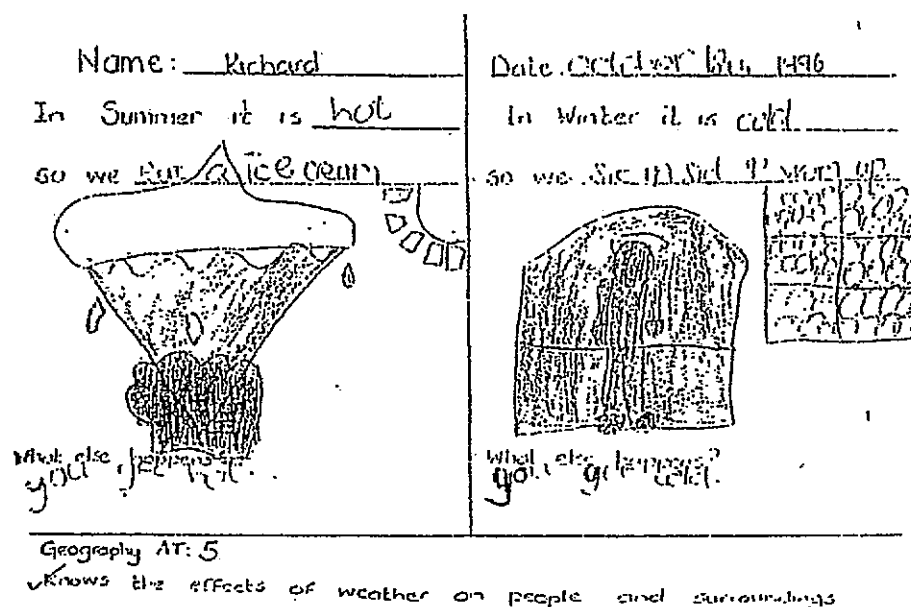 Name: Richard
In Summer it is hot
so we Eat a ice cream
What else happens?
you get hot.
Date: October 1996
In Winter it is cold
so we up
What else happens?
you get cold.
Geography AT: 5
✓Knows the effects of weather on people and surroundings